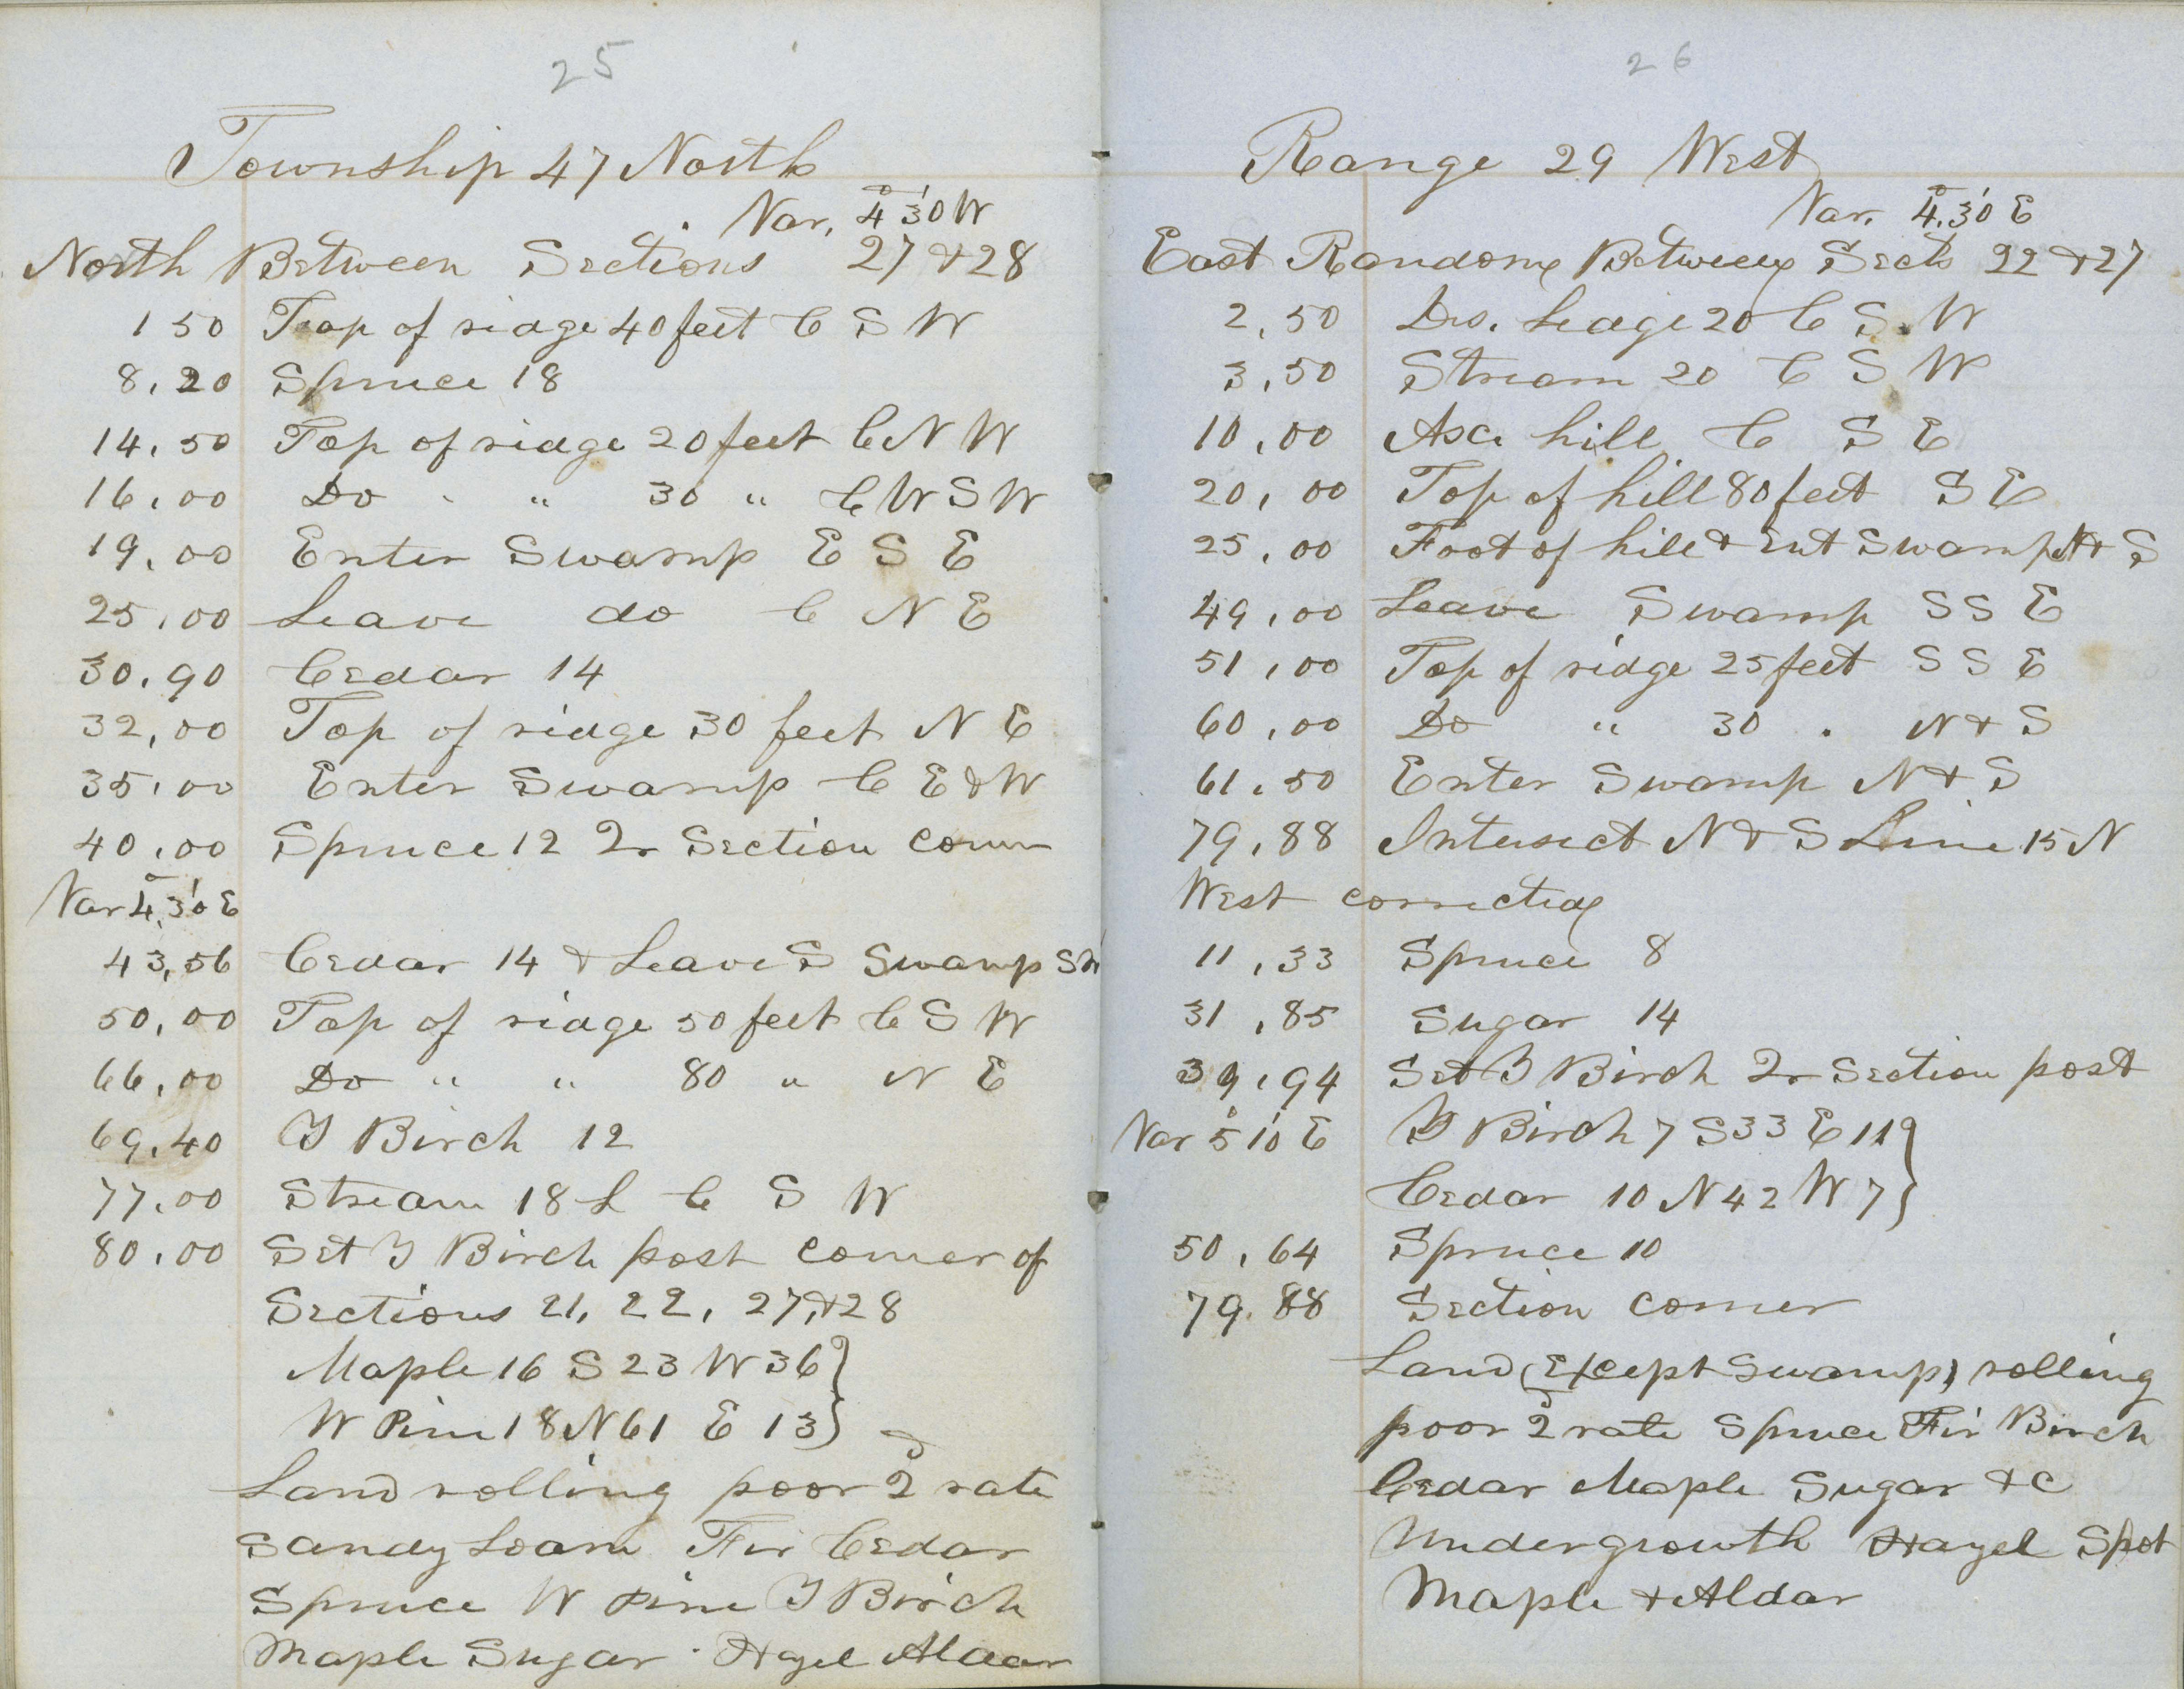 25
Township 47 North
Var. 4° 30' W
North Between Sections 27 & 28
1 50 Top of ridge 40 feet C S W
8,20 Spruce 18
14,50 Top of ridge 20 feet C N W
16,00 Do " " 30 " C W S W
19,00 Enter Swamp E S E
25,00 Leave do C N E
30,90 Cedar 14
32,00 Top of ridge 30 feet N E
35,00 Enter Swamp C E & W
40,00 Spruce 12 Qr Section corner
Var 4° 30' E
43,56 Cedar 14 & Leave S Swamp S W
50,00 Top of ridge 50 feet C S W
66,00 Do " " 80 " N E
69,40 Y Birch 12
77,00 Stream 18 L C S W
80,00 Set Y Birch post corner of
Sections 21, 22, 27, & 28
Maple 16 S 23 W 36 }
W Pine 18 N 61 E 13 }
Land rolling poor 2d rate
Sandy Loam Fir Cedar
Spruce W Pine Y Birch
Maple Sugar Hazel Aldar
26
Range 29 West
Var. 4° 30' E
East Random Between Sects 22 & 27
2,50 Des. Ledge 20 C S. W
3,50 Stream 20 C S W
10,00 Asc. hill C S E
20,00 Top of hill 80 feet S E
25,00 Foot of hill & Ent Swamp N & S
49,00 Leave Swamp S S E
51,00 Top of ridge 25 feet S S E
60,00 Do " 30 " N & S
61,50 Enter Swamp N & S
79,88 Intersect N & S Line 15 N
West correcting
11,33 Spruce 8
31,85 Sugar 14
39,94 Set Y Birch Qr Section post
Var 5° 10' E Y Birch 7 S 33 E 11 }
Cedar 10 N 42 W 7 }
50,64 Spruce 10
79.88 Section corner
Land (Except Swamp) rolling
poor 2d rate Spruce Fir Birch
Cedar Maple Sugar &C
Undergrowth Hazel Spot
Maple & Aldar